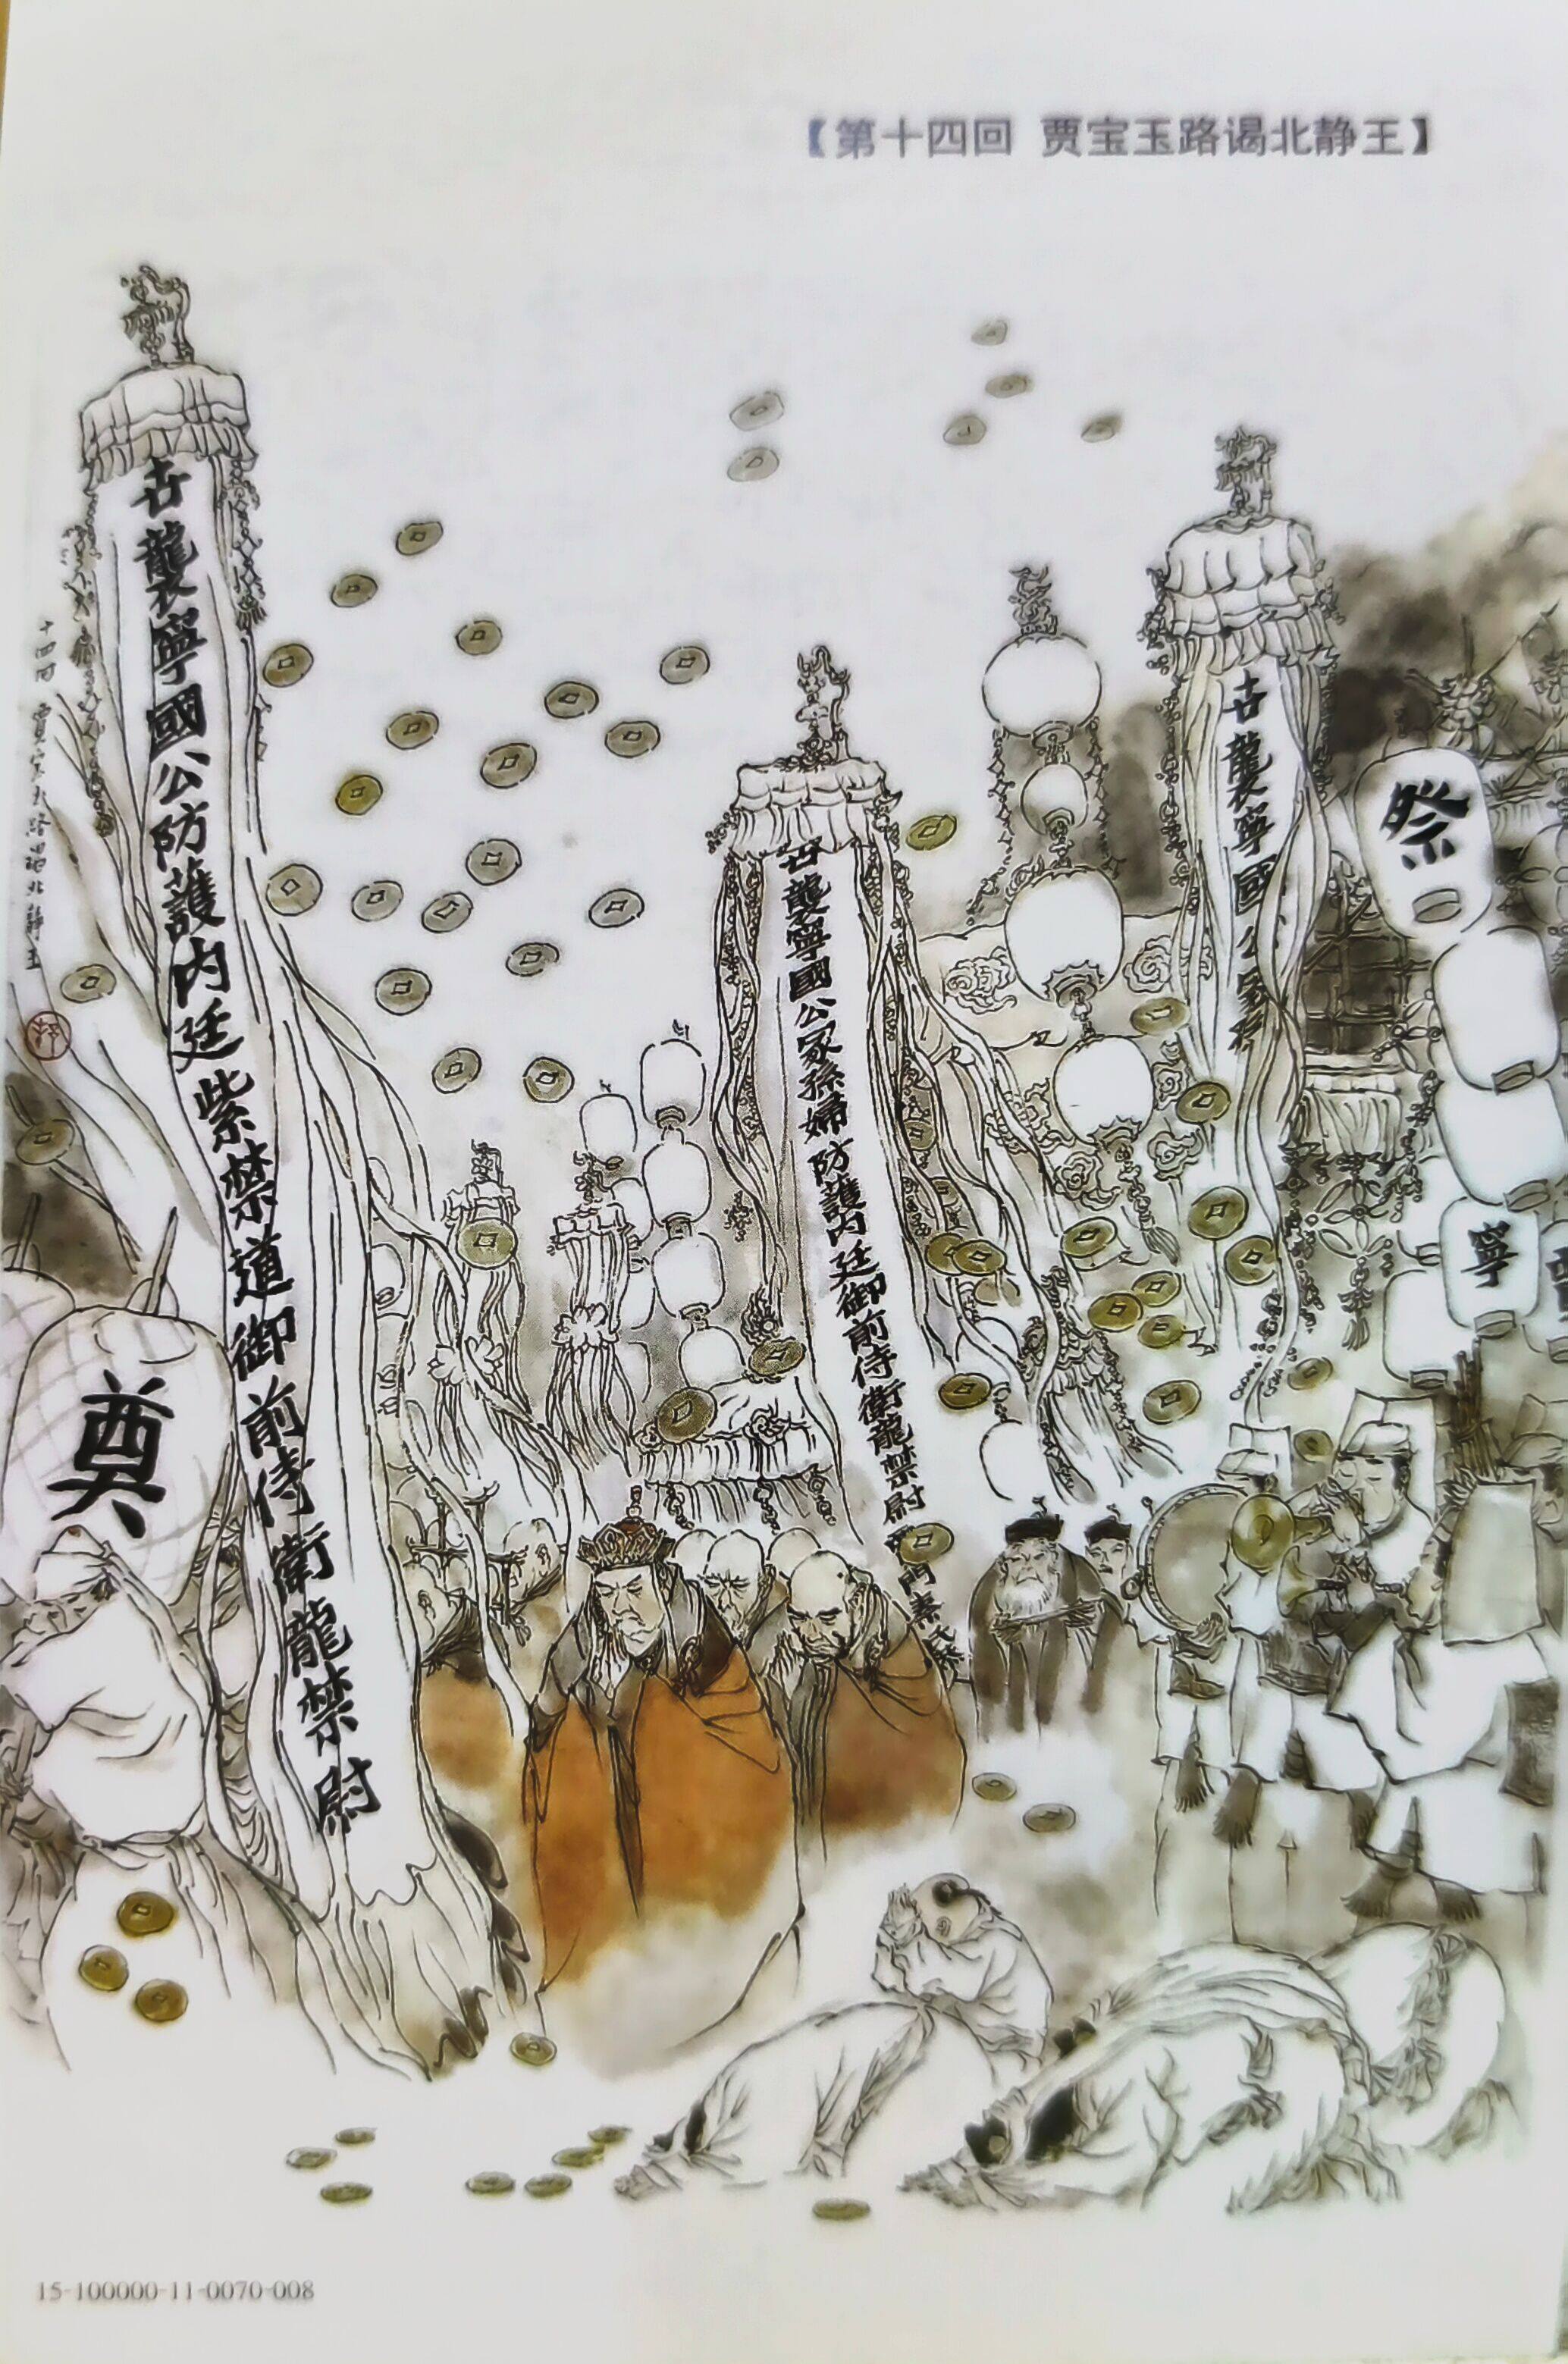 【第十四回 贾宝玉路谒北静王】
世襲寧國公防護内廷紫禁道御前侍衛龍禁尉
十四回 賈宝玉路謁北静王
世襲寧國公冢孫婦防護内廷御前侍衛龍禁尉
門秦氏
世襲寧國公冢孫
祭
寧
奠
15-100000-11-0070-008